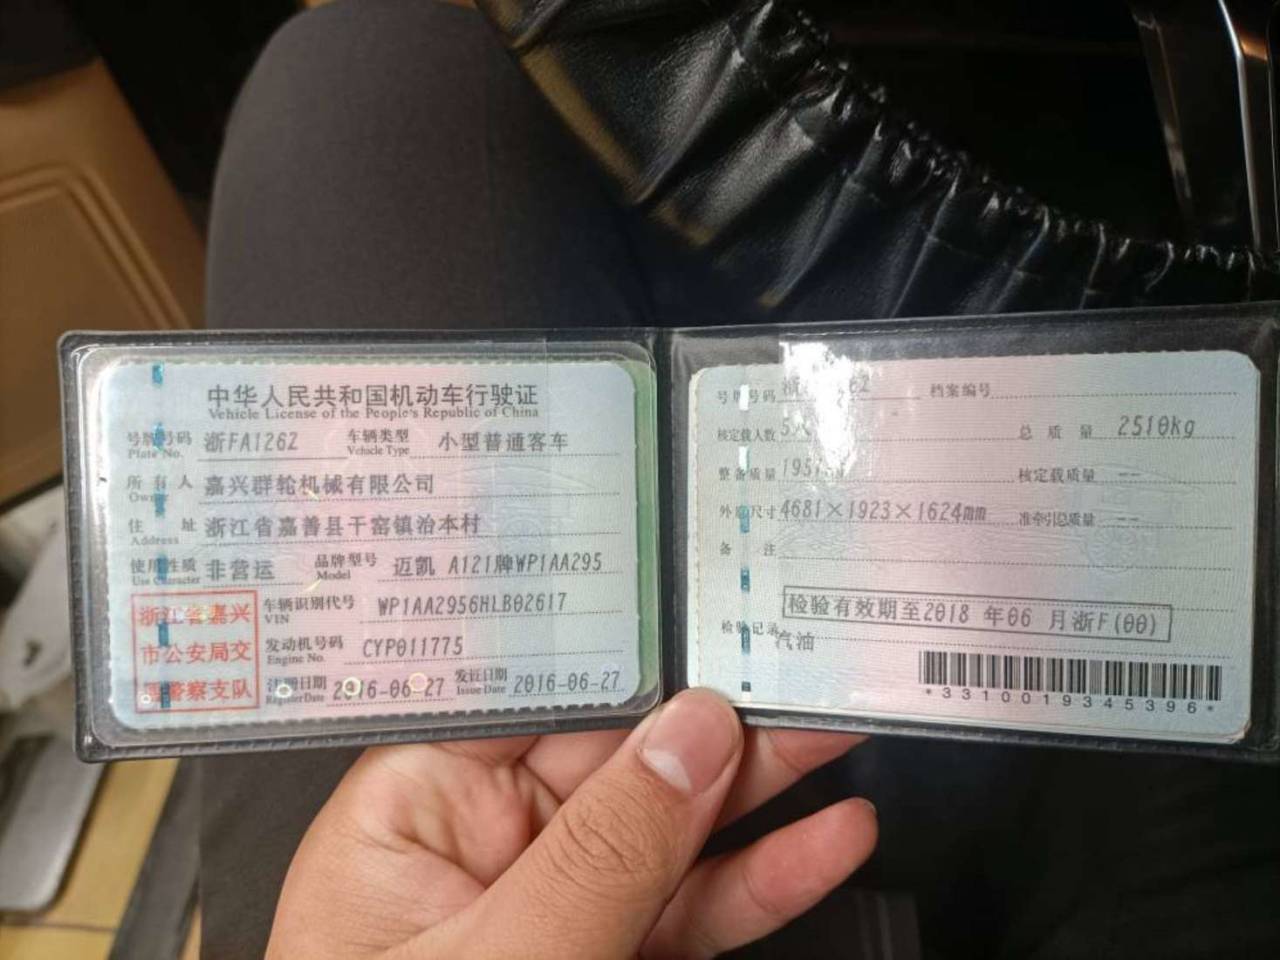 中华人民共和国机动车行驶证
Vehicle License of the People's Republic of China
号牌号码 Plate No. 浙FA126Z 车辆类型 Vehicle Type 小型普通客车
所有人 Owner 嘉兴群轮机械有限公司
住址 Address 浙江省嘉善县干窑镇治本村
使用性质 Use Character 非营运 品牌型号 Model 迈凯 A121牌WP1AA295
浙江省嘉兴
市公安局交
警察支队
车辆识别代号 VIN WP1AA2956HLB02617
发动机号码 Engine No. CYP011775
注册日期 Register Date 2016-06-27 发证日期 Issue Date 2016-06-27
号牌号码 浙 26Z 档案编号
核定载人数 5 总质量 2510kg
整备质量 195 核定载质量 --
外廓尺寸 4681×1923×1624mm 准牵引总质量 --
备注
检验有效期至2018 年06 月浙F(00)
检验记录
汽油
*3310019345396*